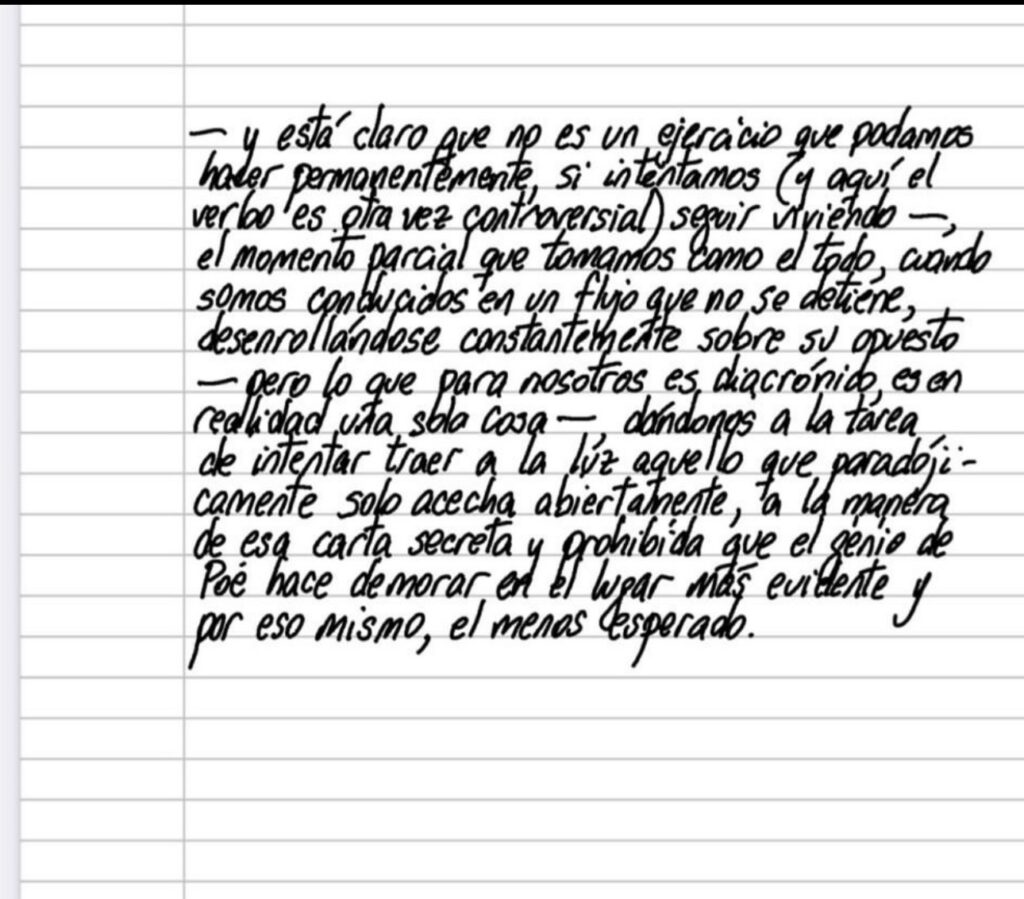 — y está claro que no es un ejercicio que podamos
hacer permanentemente, si intentamos (y aquí el
verbo es otra vez controversial) seguir viviendo —,
el momento parcial que tomamos como el todo, cuando
somos conducidos en un flujo que no se detiene,
desenrollándose constantemente sobre su opuesto
— pero lo que para nosotros es diacrónico, es en
realidad una sola cosa —, dándonos a la tarea
de intentar traer a la lúz aquello que paradóji-
camente solo acecha abiertamente, a la manera
de esa carta secreta y prohibida que el genio de
Poe hace demorar en el lugar más evidente y
por eso mismo, el menos esperado.